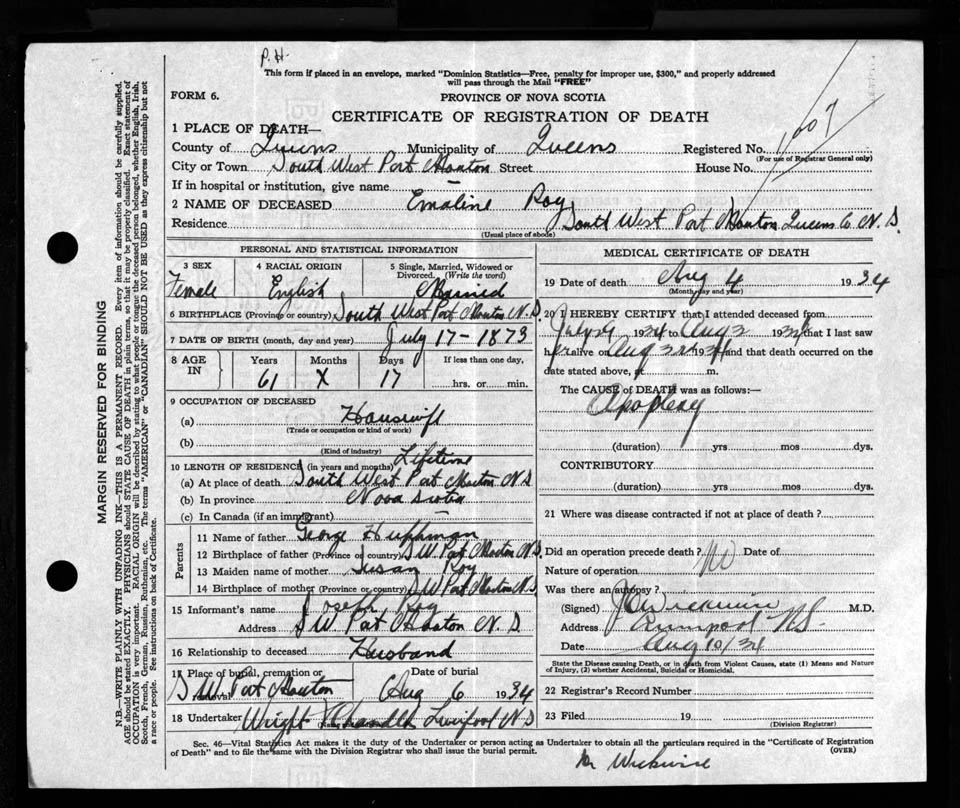 P.H.
This form if placed in an envelope, marked "Dominion Statistics—Free, penalty for improper use, $300," and properly addressed
will pass through the Mail "FREE"
FORM 6.
PROVINCE OF NOVA SCOTIA
CERTIFICATE OF REGISTRATION OF DEATH
1207
1 PLACE OF DEATH—
County of Queens Municipality of Queens Registered No.
(For use of Registrar General only)
City or Town South West Port Mouton Street House No.
If in hospital or institution, give name —
2 NAME OF DECEASED Emaline Roy
Residence South West Port Mouton Queens Co N. S.
(Usual place of abode)
PERSONAL AND STATISTICAL INFORMATION
3 SEX Female
4 RACIAL ORIGIN English
5 Single, Married, Widowed or Divorced. (Write the word) Married
6 BIRTHPLACE (Province or country) South West Port Mouton N. S.
7 DATE OF BIRTH (month, day and year) July 17 - 1873
8 AGE IN Years 61 Months X Days 17 If less than one day, hrs. or min.
9 OCCUPATION OF DECEASED
(a) Housewife
(Trade or occupation or kind of work)
(b)
(Kind of industry)
10 LENGTH OF RESIDENCE (in years and months) Lifetime
(a) At place of death South West Port Mouton N S
(b) In province Nova Scotia
(c) In Canada (if an immigrant) —
Parents
11 Name of father George Huffman
12 Birthplace of father (Province or country) S W Port Mouton N. S.
13 Maiden name of mother Susan Roy
14 Birthplace of mother (Province or country) S W Port Mouton N. S.
15 Informant's name Joseph Roy
Address S W Port Mouton N. S
16 Relationship to deceased Husband
17 Place of burial, cremation or S W Port Mouton
Date of burial Aug 6 1934
18 Undertaker Wright Chandler Liverpool N S
MEDICAL CERTIFICATE OF DEATH
19 Date of death Aug 4 1934
(Month, day and year)
20 I HEREBY CERTIFY that I attended deceased from
July 24 1934 Aug 3 1934 that I last saw
her alive on Aug 3rd 1934 and that death occurred on the
date stated above, at m.
The CAUSE of DEATH was as follows:—
Apoplexy
(duration) yrs mos dys.
CONTRIBUTORY
(duration) yrs mos dys.
21 Where was disease contracted if not at place of death?
Did an operation precede death? No Date of
Nature of operation
Was there an autopsy?
(Signed) Wickwire M.D.
Address Liverpool N.S.
Date Aug 10/34
State the Disease causing Death, or in death from Violent Causes, state (1) Means and Nature
of Injury, (2) whether Accidental, Suicidal or Homicidal.
22 Registrar's Record Number
23 Filed 19
(Division Registrar)
Sec. 46—Vital Statistics Act makes it the duty of the Undertaker or person acting as Undertaker to obtain all the particulars required in the "Certificate of Registration
of Death" and to file the same with the Division Registrar who shall issue the burial permit.
(OVER)
Dr Wickwire
MARGIN RESERVED FOR BINDING
N.B.—WRITE PLAINLY WITH UNFADING INK—THIS IS A PERMANENT RECORD. Every item of information should be carefully supplied.
AGE should be stated EXACTLY. PHYSICIANS should STATE CAUSE OF DEATH in plain terms, so that it may be properly classified. Exact statement of
OCCUPATION is very important. RACIAL ORIGIN will be described by stating to what people or tongue the deceased person belonged, whether English, Irish,
Scotch, French, German, Russian, Ruthenian, etc. The terms "AMERICAN" or "CANADIAN" SHOULD NOT BE USED as they express citizenship but not
a race or people. See instructions on back of Certificate.